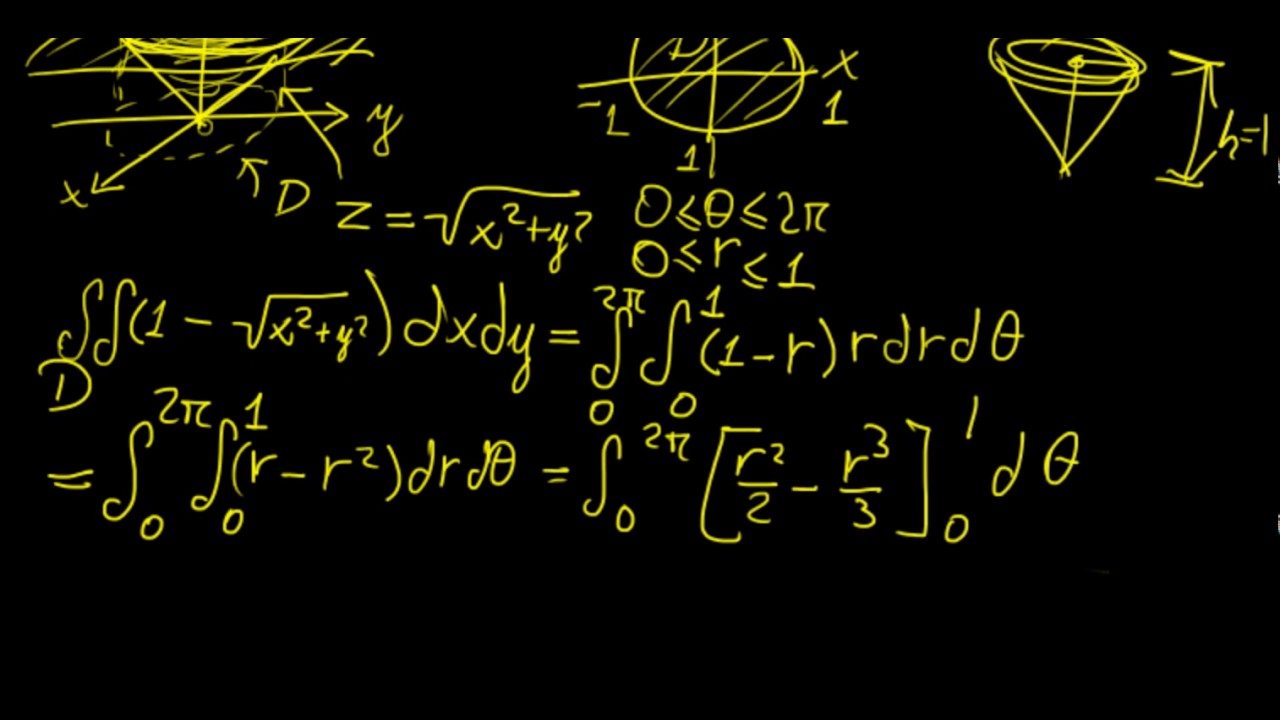 x
-1
1
y
h=1
1
x
D
z = √(x²+y²)
0 ≤ θ ≤ 2π
0 ≤ r ≤ 1
∬_D (1 - √(x²+y²)) dxdy = ∫_0^{2π} ∫_0^1 (1-r) r dr dθ
= ∫_0^{2π} ∫_0^1 (r - r²) dr dθ = ∫_0^{2π} [r²/2 - r³/3]_0^1 dθ